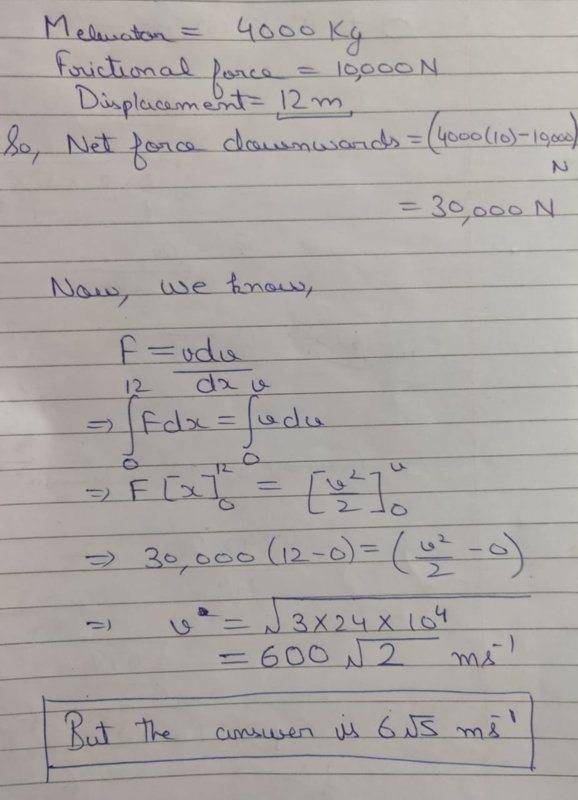 Melevator = 4000 Kg
Frictional force = 10,000 N
Displacement = 12 m
So, Net force downwards = (4000(10) - 10,000) N
= 30,000 N
Now, we know,
F = vdv/dx
⇒ ∫₀¹² Fdx = ∫₀ᵛ vdv
⇒ F [x]₀¹² = [v²/2]₀ᵛ
⇒ 30,000 (12-0) = (v²/2 - 0)
⇒ v = √(3×24×10⁴)
= 600 √2 ms⁻¹
But the answer is 6√5 ms⁻¹